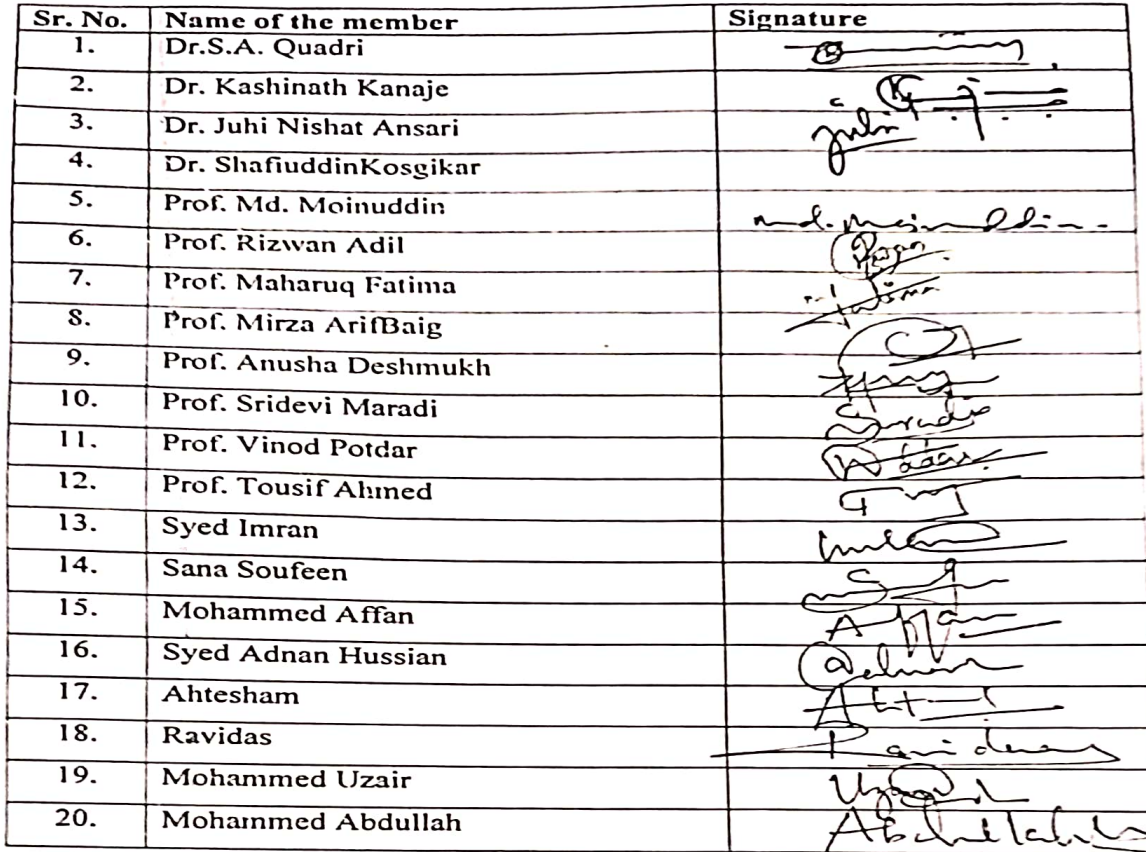 Sr. No. Name of the member Signature
1. Dr.S.A. Quadri
2. Dr. Kashinath Kanaje
3. Dr. Juhi Nishat Ansari juhi
4. Dr. ShafiuddinKosgikar
5. Prof. Md. Moinuddin md. moinuddin
6. Prof. Rizwan Adil
7. Prof. Maharuq Fatima fatima
8. Prof. Mirza ArifBaig
9. Prof. Anusha Deshmukh
10. Prof. Sridevi Maradi
11. Prof. Vinod Potdar
12. Prof. Tousif Ahmed
13. Syed Imran
14. Sana Soufeen
15. Mohammed Affan Affan
16. Syed Adnan Hussian
17. Ahtesham
18. Ravidas Ravidas
19. Mohammed Uzair
20. Mohammed Abdullah Abdullah